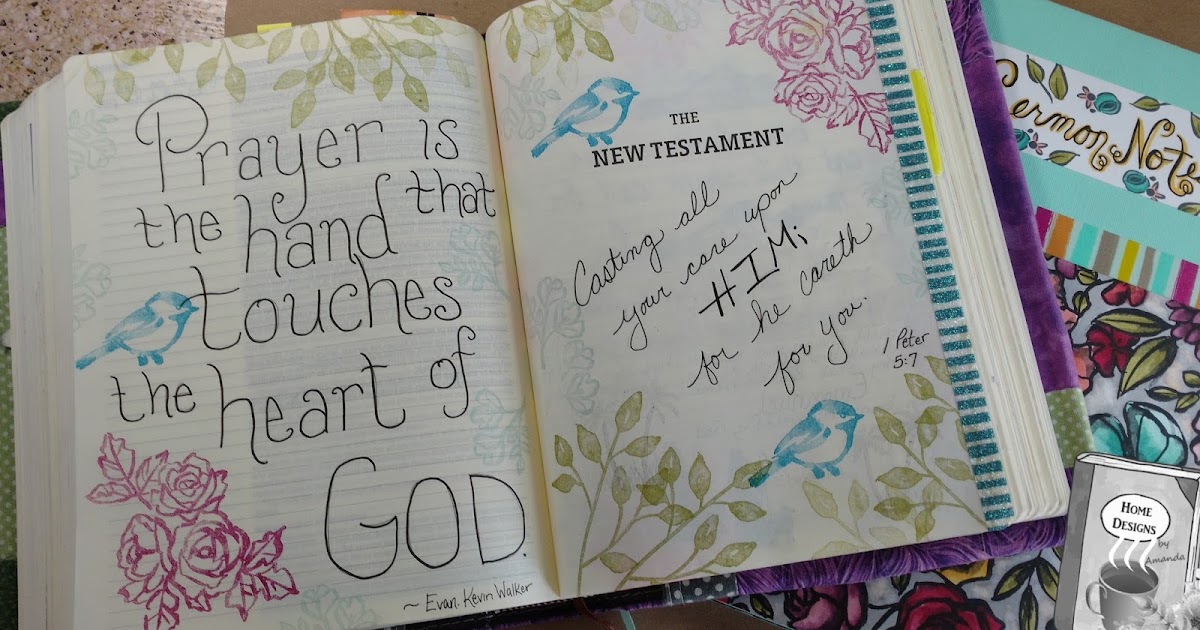 Prayer is
the hand that
touches
the heart of
GOD.
~ Evan. Kevin Walker
THE
NEW TESTAMENT
Casting all
your care upon
HIM;
for he careth
for you.
1 Peter
5:7
Sermon Notes
HOME
DESIGNS
by
Amanda